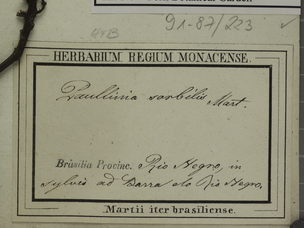 91-87/223
HERBARIUM REGIUM MONACENSE.
Paullinia sorbilis, Mart.
Brasilia Provinc. Rio Negro, in
sylvis ad Barra do Rio Negro,
Martii iter brasiliense.